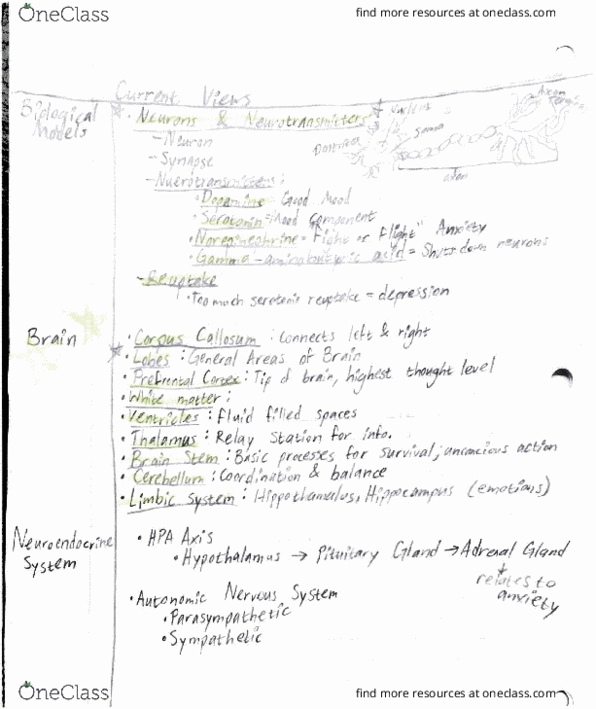 OneClass
find more resources at oneclass.com
Current Views
Biological Models
• Neurons & Neurotransmitters
Nucleus
Axon
Dendrites
Soma
axon
- Neuron
- Synapse
- Nuerotransmitters:
• Dopamine = Good Mood
• Serotonin = Mood component
• Norepinephrine = Fight or Flight" Anxiety
• Gamma-aminobutyric acid = Shuts down neurons
- Reuptake
• Too much serotonin reuptake = depression
Brain
• Corpus Callosum : connects left & right
• Lobes : General Areas of Brain
• Prefrontal Cortex : Tip of brain, highest thought level
• White matter :
• Ventricles : Fluid filled spaces
• Thalamus : Relay Station for info.
• Brain Stem : Basic processes for survival; unconcious action
• Cerebellum : Coordination & balance
• Limbic System : Hippothamulus, Hippocampus (emotions)
Neuroendocrine System
• HPA Axis
• Hypothalamus → Pituitary Gland → Adrenal Gland
relates to
anxiety
• Autonomic Nervous System
• Parasympathetic
• Sympathetic
OneClass
find more resources at oneclass.com